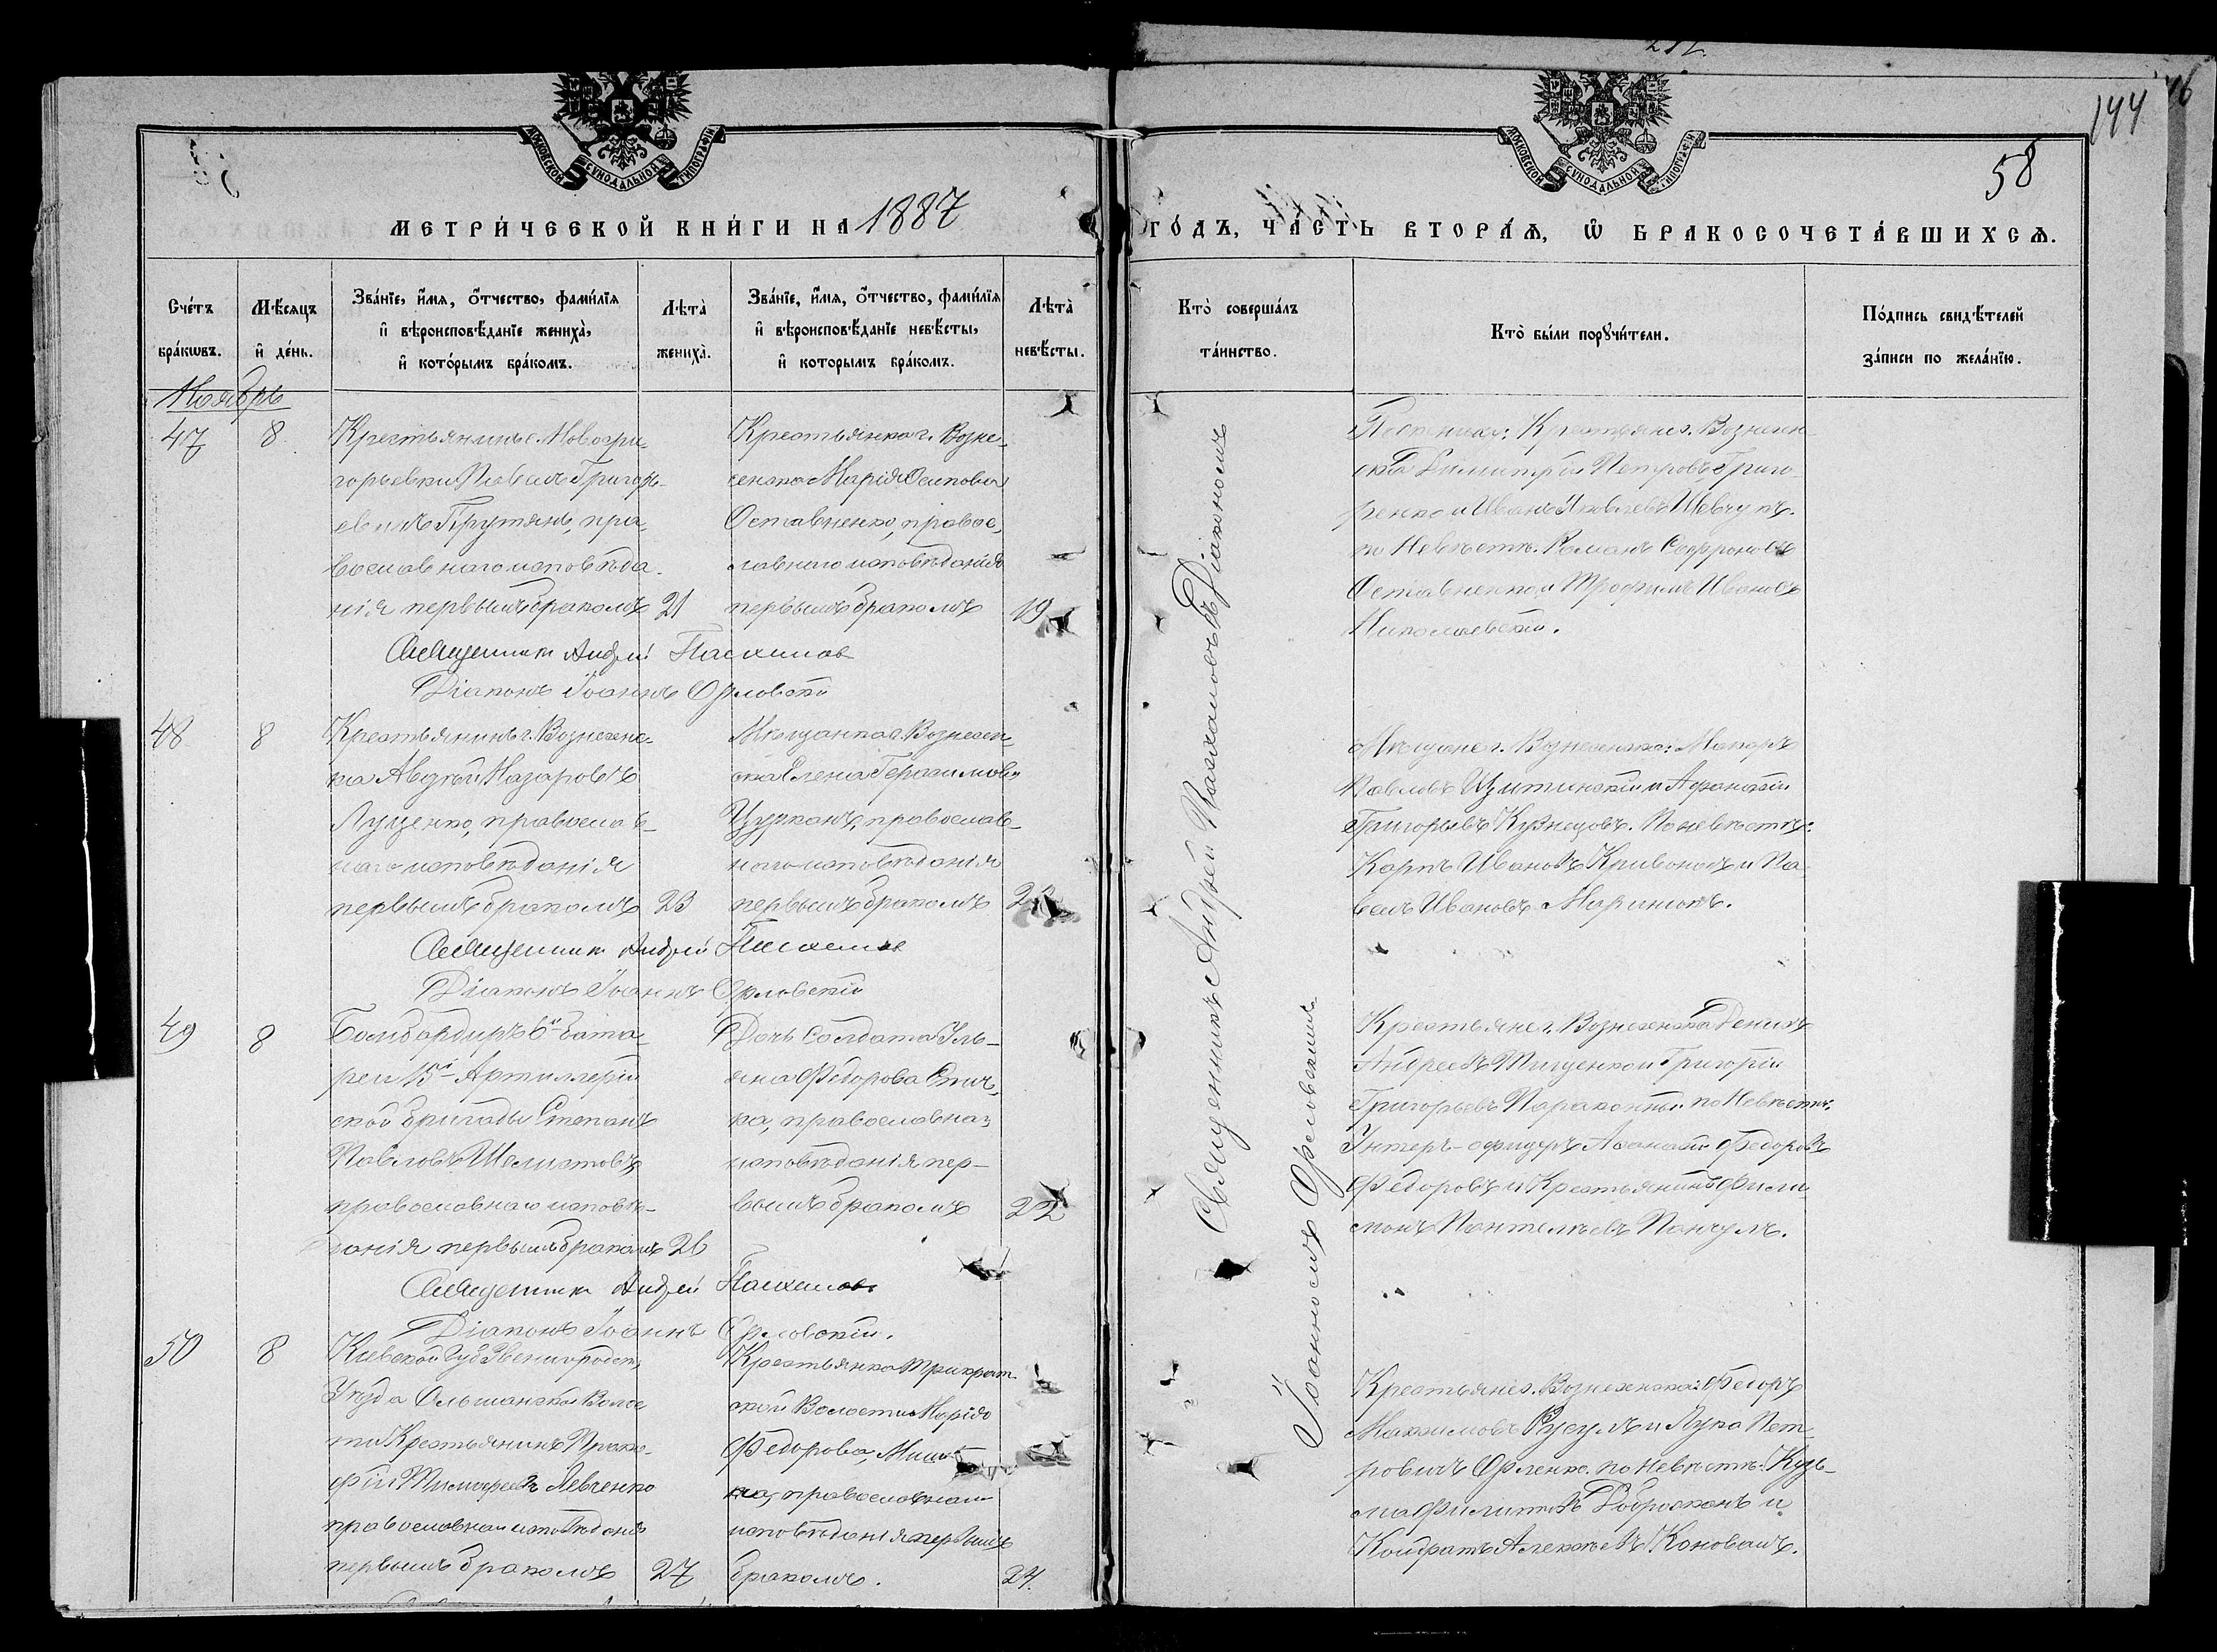 144
58
МОСКОВСКОЙ СѴНОДАЛЬНОЙ ТИПОГРАФІИ
МОСКОВСКОЙ СѴНОДАЛЬНОЙ ТИПОГРАФІИ
МЕТРИ́ЧЕСКОЙ КНИ́ГИ НА 1887 ГО́ДЪ, ЧА́СТЬ ВТОРА́Ѧ, Ѡ БРАКОСОЧЕТА́ВШИХСѦ.
Сче́тъ бра́кѡвъ.
Мѣ́сяцъ и де́нь.
Зва́нїе, и́мя, о́тчество, фами́лїя
и вѣроисповѣ́данїе жениха̀,
и кото́рымъ бра́комъ.
Лѣта̀ жениха̀.
Зва́нїе, и́мя, о́тчество, фами́лїя
и вѣроисповѣ́данїе невѣ́сты,
и которымъ бра́комъ.
Лѣта̀ невѣ́сты.
Кто̀ соверша́лъ та́инство.
Кто̀ бы́ли порꙋчи́тели.
По́дпись свидѣ́телей
за́писи по жела́нїю.
Ноябрь
47
8
Крестьянинъ с. Новогри-
горьевки Павелъ Григорь-
евичъ Прутянъ, пра-
вославнаго исповѣда-
нія первымъ бракомъ
21
Крестьянка г. Возне-
сенска Марія Осипова
Оставненко, правос-
лавнаго исповѣданія
первымъ бракомъ
19
Крестьяне г. Вознесен-
ска Димитрій Петровъ Григо-
ренко и Иванъ Яковлевъ Шевчукъ.
по Невѣстѣ. Романъ Софроновъ
Оставненко и Трофимъ Ивановъ
Николаевскій.
Священникъ Андрей Пасхаловъ
Діаконъ Іоаннъ Орловскій
48
8
Крестьянинъ г. Вознесенс-
ка Авдѣй Назаровъ
Луценко, православ-
наго исповѣданія
первымъ бракомъ
23
Мѣщанка г. Вознесен-
ска Елена Герасимова
Цурканъ, православ-
наго исповѣданія
первымъ бракомъ
Мѣщане г. Вознесенска: Макаръ
Павловъ и Афанасій
Григорьевъ Кузнецовъ. По невѣстѣ:
Карпъ Ивановъ Кривоносъ и Па-
велъ Ивановъ Маринюкъ.
Священникъ Андрей Пасхаловъ
Діаконъ Іоаннъ Орловскій
49
8
Бомбардиръ 6й бата-
реи 15й Артиллерій-
ской бригады Степанъ
Павловъ Шелистовъ,
православнаго исповѣ-
данія первымъ бракомъ
26
Дочь Солдата Уль-
яна Федорова
православнаго
исповѣданія пер-
вымъ бракомъ
22
Крестьяне г. Вознесенска Денисъ
Андреевъ Тищенко и Григорій
Григорьевъ по Невѣстѣ:
Унтеръ-офицеръ Афанасій Федоровъ
Федоровъ и Крестьянинъ Фили-
монъ Пантелѣевъ Панчулъ.
Священникъ Андрей Пасхаловъ
Діаконъ Іоаннъ Орловскій.
50
8
Кіевской Губ. Звенигородск.
Уѣзда Ольшанской Волос-
ти Крестьянинъ Проко-
фій Тимофеевъ Левченко
православнаго исповѣданія
первымъ бракомъ
27
Крестьянка Трикрат-
ской Волости Марія
Федорова,
православнаго
исповѣданія первымъ
бракомъ.
24.
Крестьяне г. Вознесенска: Федоръ
Максимовъ Русулъ и Лука Пет-
ровичъ Орленко. по Невѣстѣ: Кузь-
ма Филиповъ Добросконъ и
Кондратъ Алексѣевъ Коновалъ.
Священникъ Андрей Пасхаловъ съ Діакономъ
Іоанномъ Орловскимъ